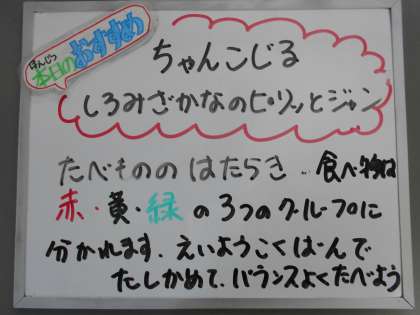 ほんじつ
本日のおすすめ
ちゃんこじる
しろみざかなのピリッとジャン
たべもののはたらき…食べ物は
赤・黄・緑の3つのグループに
分かれます。えいようこくばんで
たしかめて、バランスよくたべよう